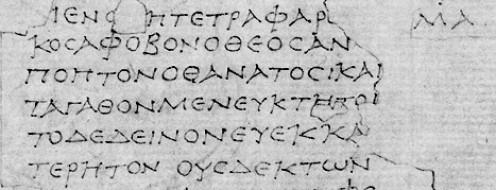 ΜΕΝΟ ΗΤΕΤΡΑΦΑΡ ΜΑ
ΚΟCΑΦΟΒΟΝΟΘΕΟCΑΝ
ΠΟΠΤΟΝΟΘΑΝΑΤΟCΚΑΙ
ΤΑΓΑΘΟΝΜΕΝΕΥΚΤΗΤΟΝ
ΤΟΔΕΔΕΙΝΟΝΕΥΕΚΚΑ
ΤΕΡΗΤΟΝ ΟΥCΔΕΚΤΩΝ